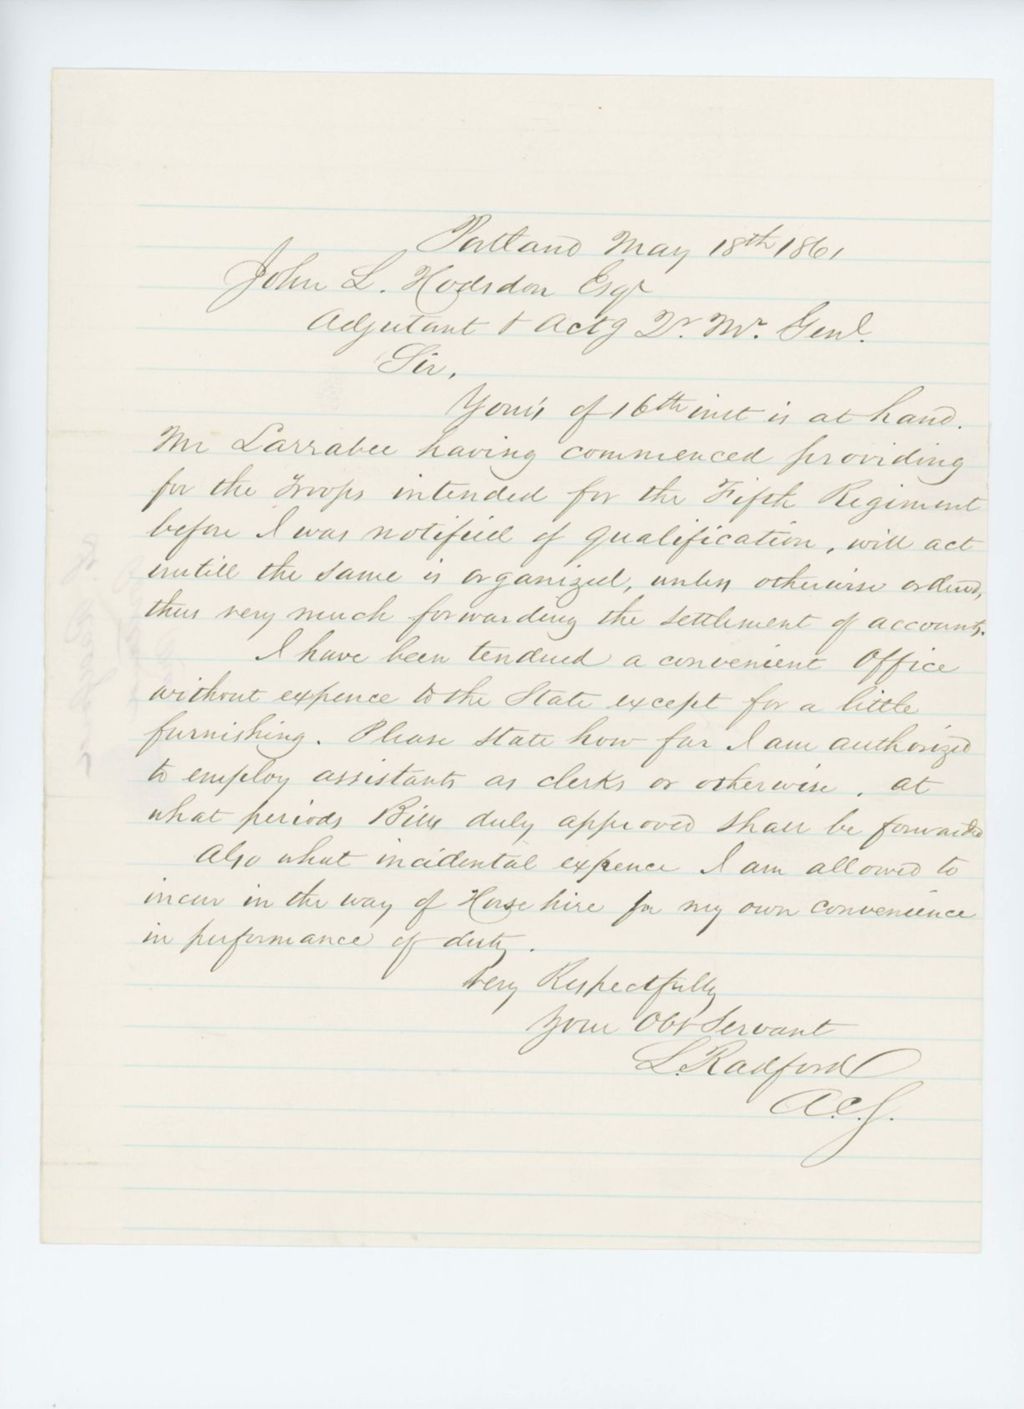 Portland May 18th 1861
John L. Hodsdon Esqr
Adjutant & Actg Qr. Mr. Genl.
Sir,
Your's of 16th inst is at hand.
Mr Larrabee having commenced providing
for the Troops intended for the Fifth Regiment
before I was notified of qualification, will act
untill the same is organized, unless otherwise ordered,
thus very much forwarding the settlement of accounts.
I have been tendered a convenient Office
without expence to the State except for a little
furnishing. Please state how far I am authorized
to employ assistants as clerks or otherwise. at
what periods Bills duly approved shall be forwarded
Also what incidental expence I am allowed to
incur in the way of Horse hire for my own convenience
in performance of duty.
Very Respectfully
Your Obt Servant
L. Radford